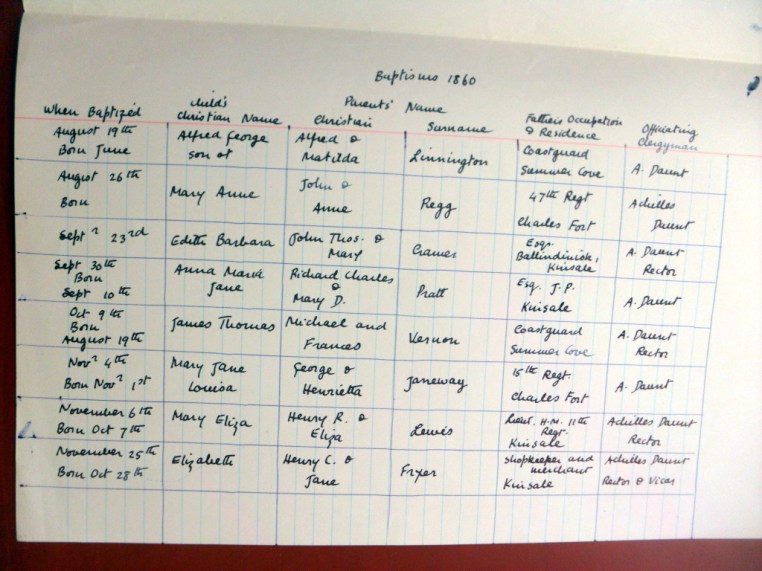 Baptisms 1860
When Baptized Child's Christian Name Parents' Name Christian Surname Father's Occupation & Residence Officiating Clergyman
August 19th Alfred George Alfred & Coastguard
Born June son of Matilda Linnington Summer Cove A. Daunt
August 26th John & 47th Regt Achilles
Born Mary Anne Anne Regg Charles Fort Daunt
Sept r 23rd Edith Barbara John Thos. & Cramer Esqr. A. Daunt
Mary Ballindinisk, Rector
Kinsale
Sept 30th Anna Maria Richard Charles Esq. J.P.
Born Jane & Pratt A. Daunt
Sept 10th Mary D. Kinsale
Oct 9th James Thomas Michael and Coastguard A. Daunt
Born Frances Vernon Summer Cove Rector
August 19th
Nov r 4th Mary Jane George & 15th Regt.
Born Nov r 1st Louisa Henrietta Janeway Charles Fort A. Daunt
November 6th Mary Eliza Henry R. & Lewis Lieut. H.M. 11th Achilles Daunt
Born Oct 7th Eliza Regt. Rector
Kinsale
November 25th Elizabeth Henry C. & Shopkeeper and Achilles Daunt
Born Oct 28th Jane Fryer merchant
Kinsale Rector & Vicar